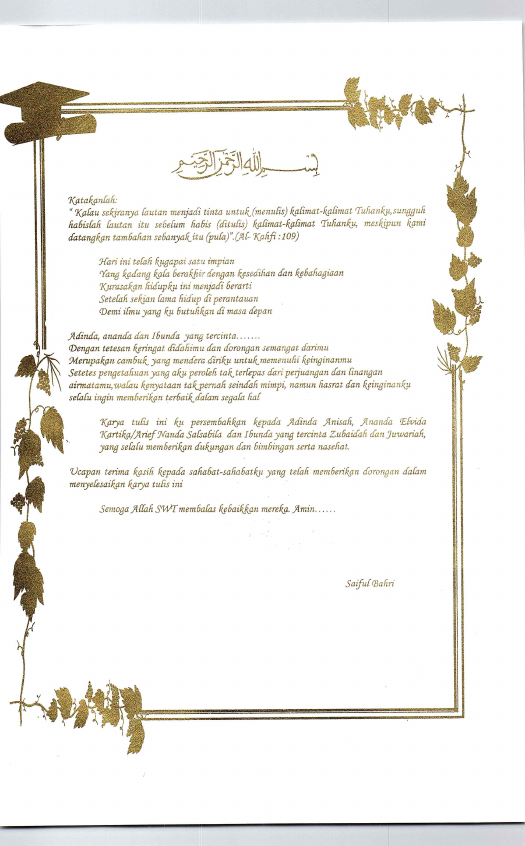 بسم الله الرحمن الرحيم
Katakanlah:
" Kalau sekiranya lautan menjadi tinta untuk (menulis) kalimat-kalimat Tuhanku,sungguh
habislah lautan itu sebelum habis (ditulis) kalimat-kalimat Tuhanku, meskipun kami
datangkan tambahan sebanyak itu (pula)".(Al- Kahfi :109)
Hari ini telah kugapai satu impian
Yang kadang kala berakhir dengan kesedihan dan kebahagiaan
Kurasakan hidupku ini menjadi berarti
Setelah sekian lama hidup di perantauan
Demi ilmu yang ku butuhkan di masa depan
Adinda, ananda dan Ibunda yang tercinta…….
Dengan tetesan keringat didahimu dan dorongan semangat darimu
Merupakan cambuk yang mendera diriku untuk memenuhi keinginanmu
Setetes pengetahuan yang aku peroleh tak terlepas dari perjuangan dan linangan
airmatamu,walau kenyataan tak pernah seindah mimpi, namun hasrat dan keinginanku
selalu iugin memberikan terbaik dalam segala hal
Karya tulis ini ku persembahkan kepada Adinda Anisah, Ananda Elvida
Kartika/Arief Nanda Salsabila dan Ibunda yang tercinta Zubaidah dan Juwariah,
yang selalu memberikan dukungan dan bimbingan serta nasehat.
Ucapan terima kasih kepada sahabat-sahabatku yang telah memberikan dorongan dalam
menyelesaikan karya tulis ini
Semoga Allah SWT membalas kebaikkan mereka. Amin……
Saiful Bahri